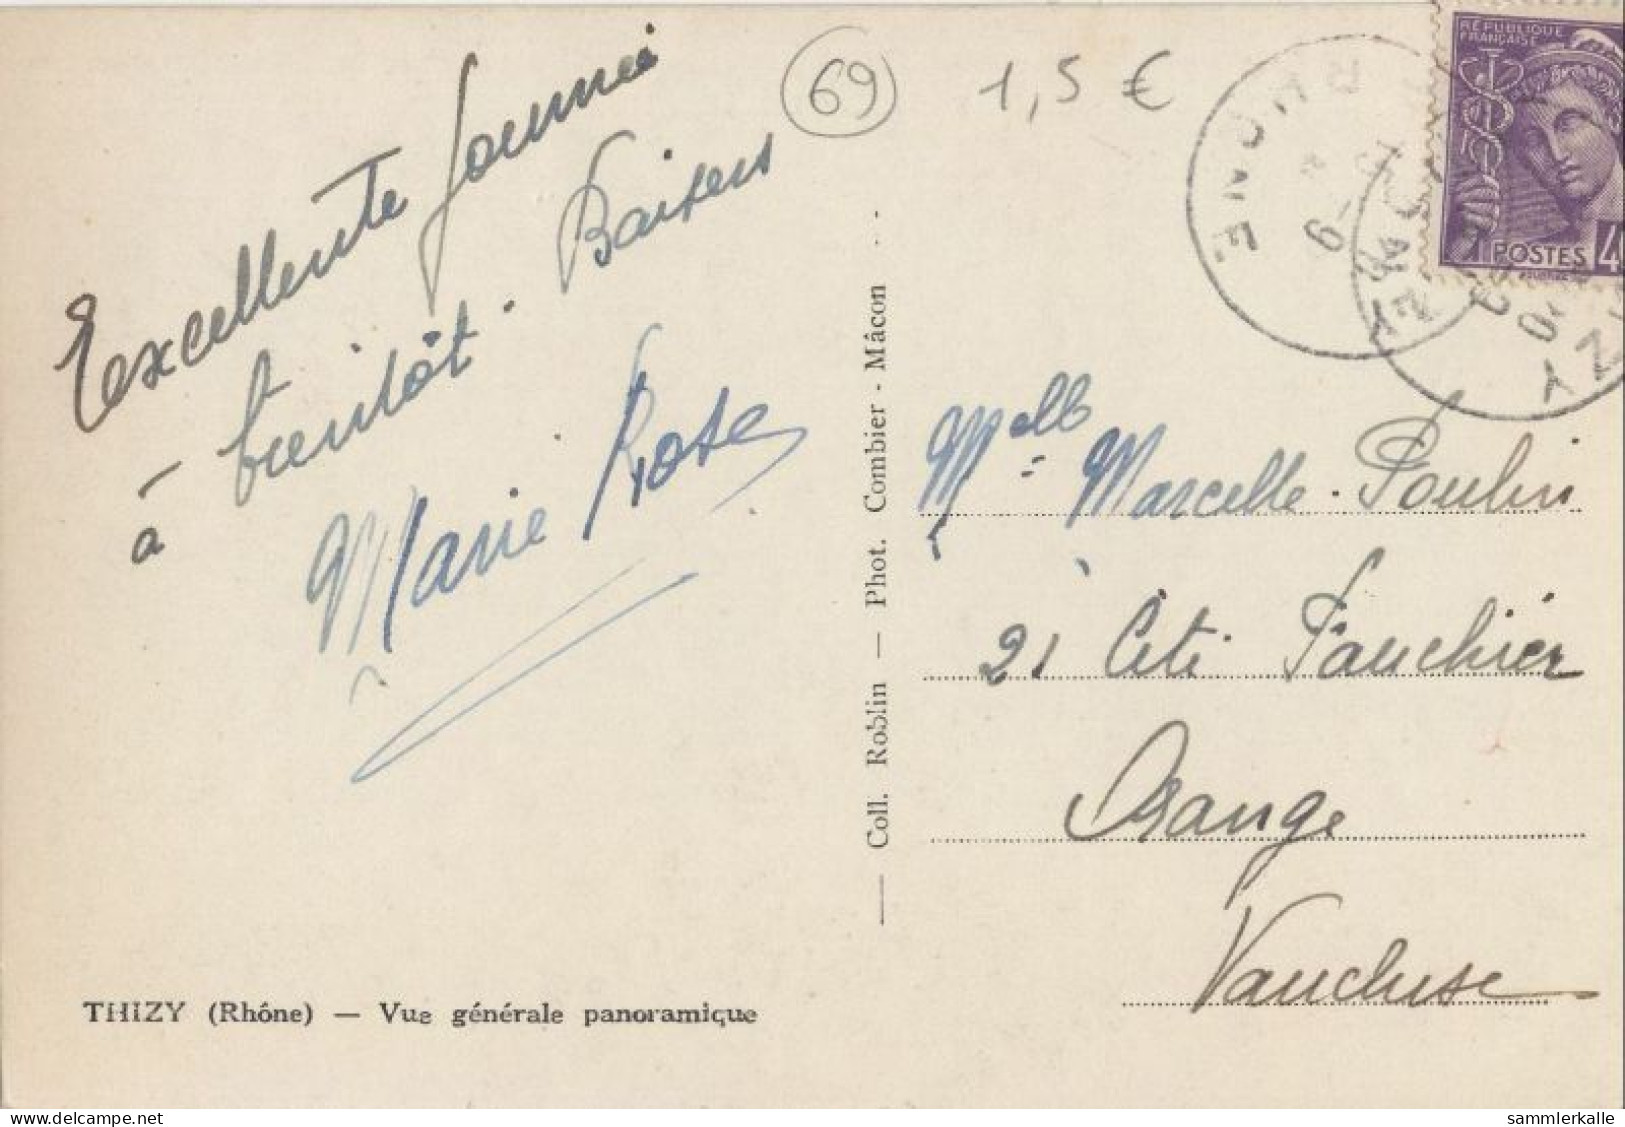 69
1,5 €
RÉPUBLIQUE
FRANÇAISE
POSTES 4
RHÔNE
Excellente journée
à bientôt. Baisers
Marie Rose
Melle Marcelle Poulin
21 Cité Fauchier
Orange
Vaucluse
— Coll. Roblin — Phot. Combier - Mâcon - -
THIZY (Rhône) — Vue générale panoramique
delcampe.net
sammlerkalle